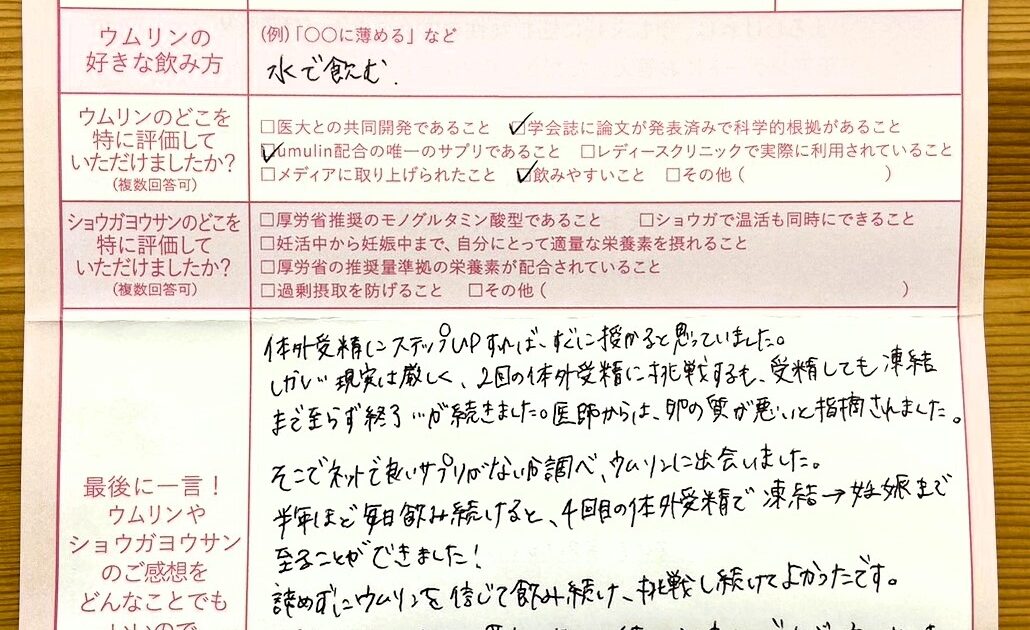 ウムリンの
好きな飲み方
(例)「○○に薄める」など
水で飲む.
ウムリンのどこを
特に評価して
いただけましたか?
(複数回答可)
□医大との共同開発であること ☑学会誌に論文が発表済みで科学的根拠があること
☑umulin配合の唯一のサプリであること □レディースクリニックで実際に利用されていること
□メディアに取り上げられたこと ☑飲みやすいこと □その他( )
ショウガヨウサンのどこを
特に評価して
いただけましたか?
(複数回答可)
□厚労省推奨のモノグルタミン酸型であること □ショウガで温活も同時にできること
□妊活中から妊娠中まで、自分にとって適量な栄養素を摂れること
□厚労省の推奨量準拠の栄養素が配合されていること
□過剰摂取を防げること □その他( )
最後に一言!
ウムリンや
ショウガヨウサン
のご感想を
どんなことでも
いいので
体外受精にステップUPすれば、すぐに授かると思っていました。
しかし現実は厳しく、2回の体外受精に挑戦するも、受精しても凍結
まで至らず終了…が続きました。医師からは、卵の質が悪いと指摘されました。
そこでネットで良いサプリがないか調べ、ウムリンに出会いました。
半年ほど毎日飲み続けると、4回目の体外受精で凍結→妊娠まで
至ることができました!
諦めずにウムリンを信じて飲み続け、挑戦し続けてよかったです。